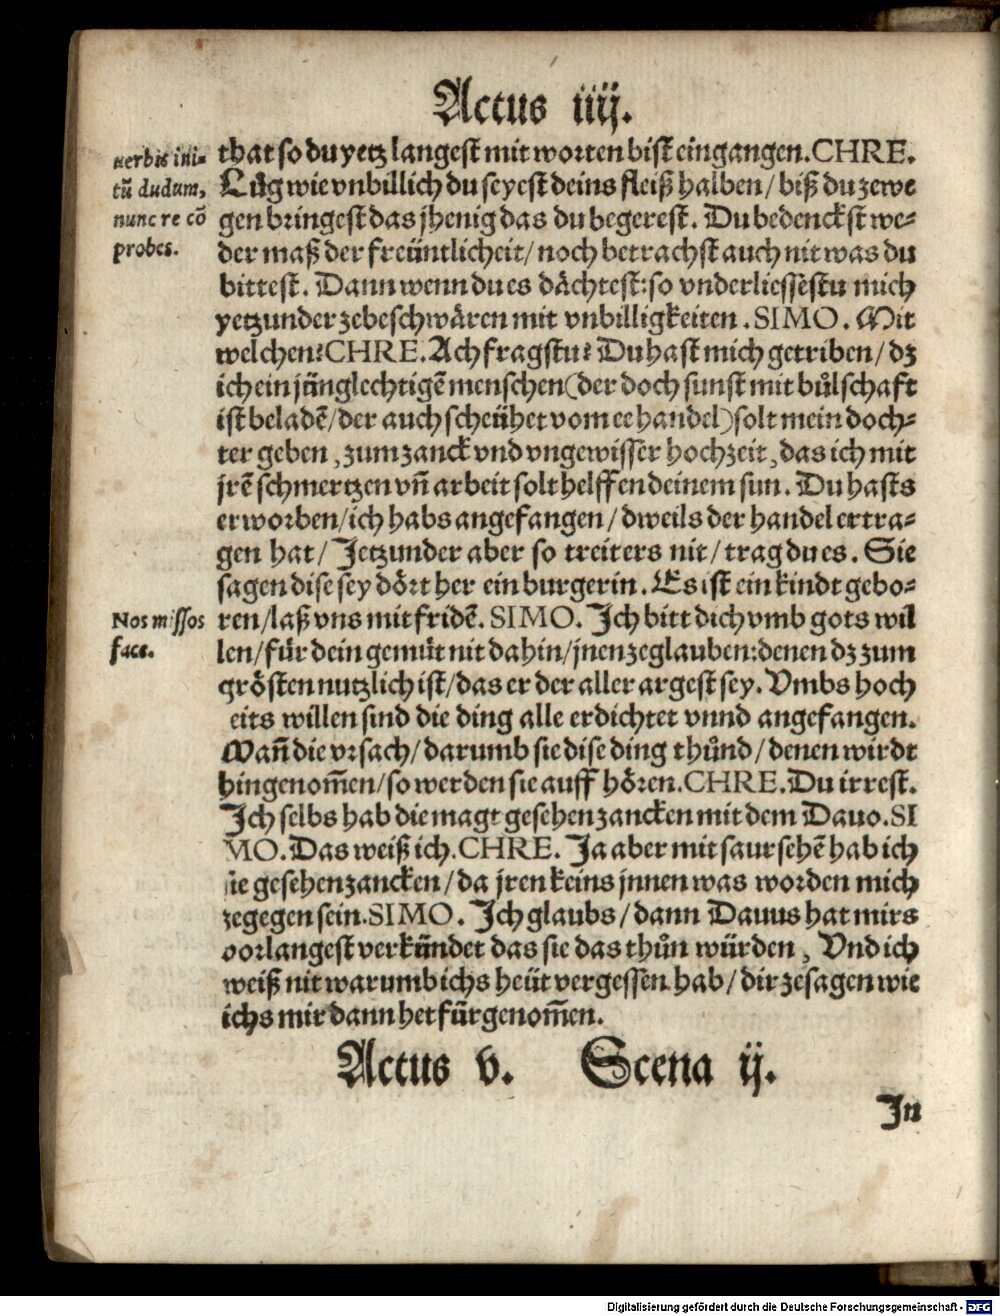 Actus iiij.
uerbis ini-
tū dudum,
nunc re cō
probes.
that so du yetz langest mit worten bist eingangen. CHRE.
Lůg wie vnbillich du seyest deins fleiß halben / biß du zewe
gen bringest das jhenig das du begerest. Du bedenckst we-
der maß der freüntlicheit / noch betrachst auch nit was du
bittest. Dann wenn du es dächtest: so vnderliessestu mich
yetzunder zebeschwären mit vnbilligkeiten. SIMO. Mit
welchen? CHRE. Ach fragstu? Du hast mich getriben / dz
ich ein jünglechtigē menschen (der doch sunst mit bůlschaft
ist beladē / der auch scheühet vom ee handel) solt mein doch-
ter geben, zum zanck vnd vngewisser hochzeit, das ich mit
jrē schmertzen vñ arbeit solt helffen deinem sun. Du hasts
erworben / ich habs angefangen / dweils der handel ertra-
gen hat / Jetzunder aber so treiters nit / trag du es. Sie
sagen dise sey dört her ein burgerin. Es ist ein kindt gebo-
Nos missos
face.
ren / laß vns mit fridē. SIMO. Ich bitt dich vmb gots wil
len / für dein gemüt nit dahin / jnen zeglauben: denen dz zum
grösten nutzlich ist / das er der aller argest sey. Vmbs hoch
eits willen sind die ding alle erdichtet vnnd angefangen.
Wañ die vrsach / darumb sie dise ding thůnd / denen wirdt
hingenom̄en / so werden sie auff hören. CHRE. Du irrest.
Ich selbs hab die magt gesehen zancken mit dem Dauo. SI
MO. Das weiß ich. CHRE. Ja aber mit saur sehē hab ich
sie gesehen zancken / da jren keins jnnen was worden mich
zegegen sein. SIMO. Ich glaubs / dann Dauus hat mirs
vorlangest verkündet das sie das thůn würden, Vnd ich
weiß nit warumb ichs heüt vergessen hab / dir zesagen wie
ichs mir dann het fürgenom̄en.
Actus v. Scena ij.
In
Digitalisierung gefördert durch die Deutsche Forschungsgemeinschaft - DFG